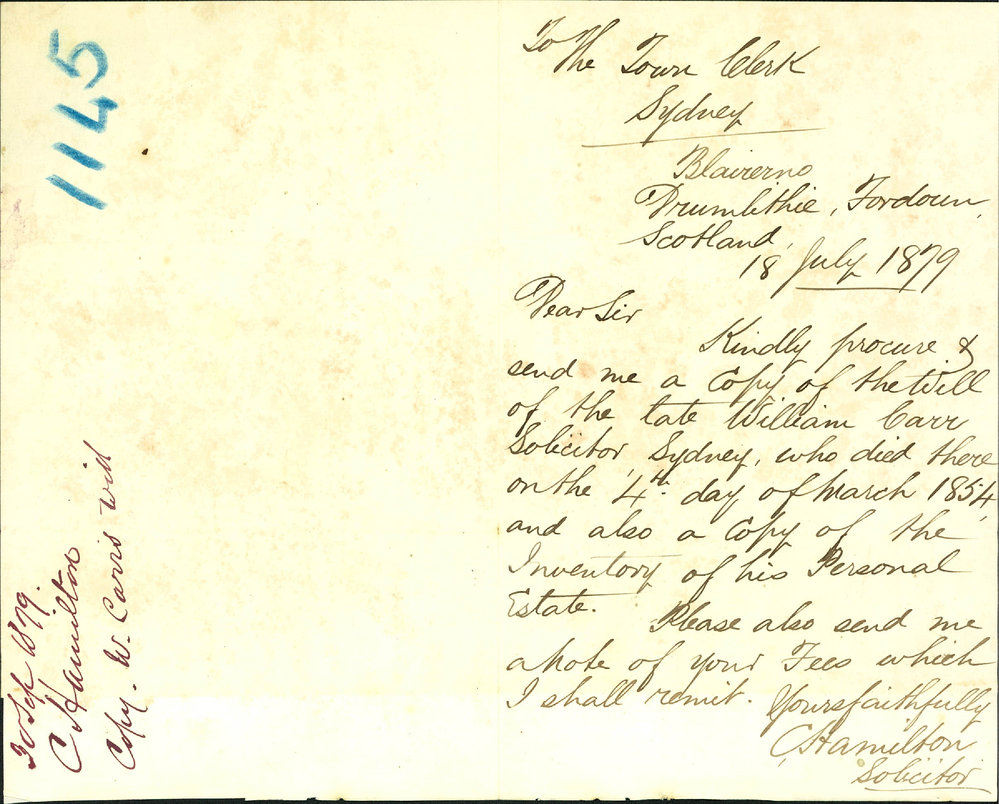 To The Town Clerk
Sydney
Blairerno
Drumlithie, Fordoun,
Scotland,
18 July 1879
Dear Sir
Kindly procure &
send me a Copy of the Will
of the late William Carr
Solicitor, Sydney, who died there
on the 4th. day of March 1854,
and also a Copy of the
Inventory of his Personal
Estate.
Please also send me
a Note of your Fees which
I shall remit. Yours faithfully
C Hamilton
Solicitor
1145
Sep 1879.
C Hamilton
Copy. W. Carrs will